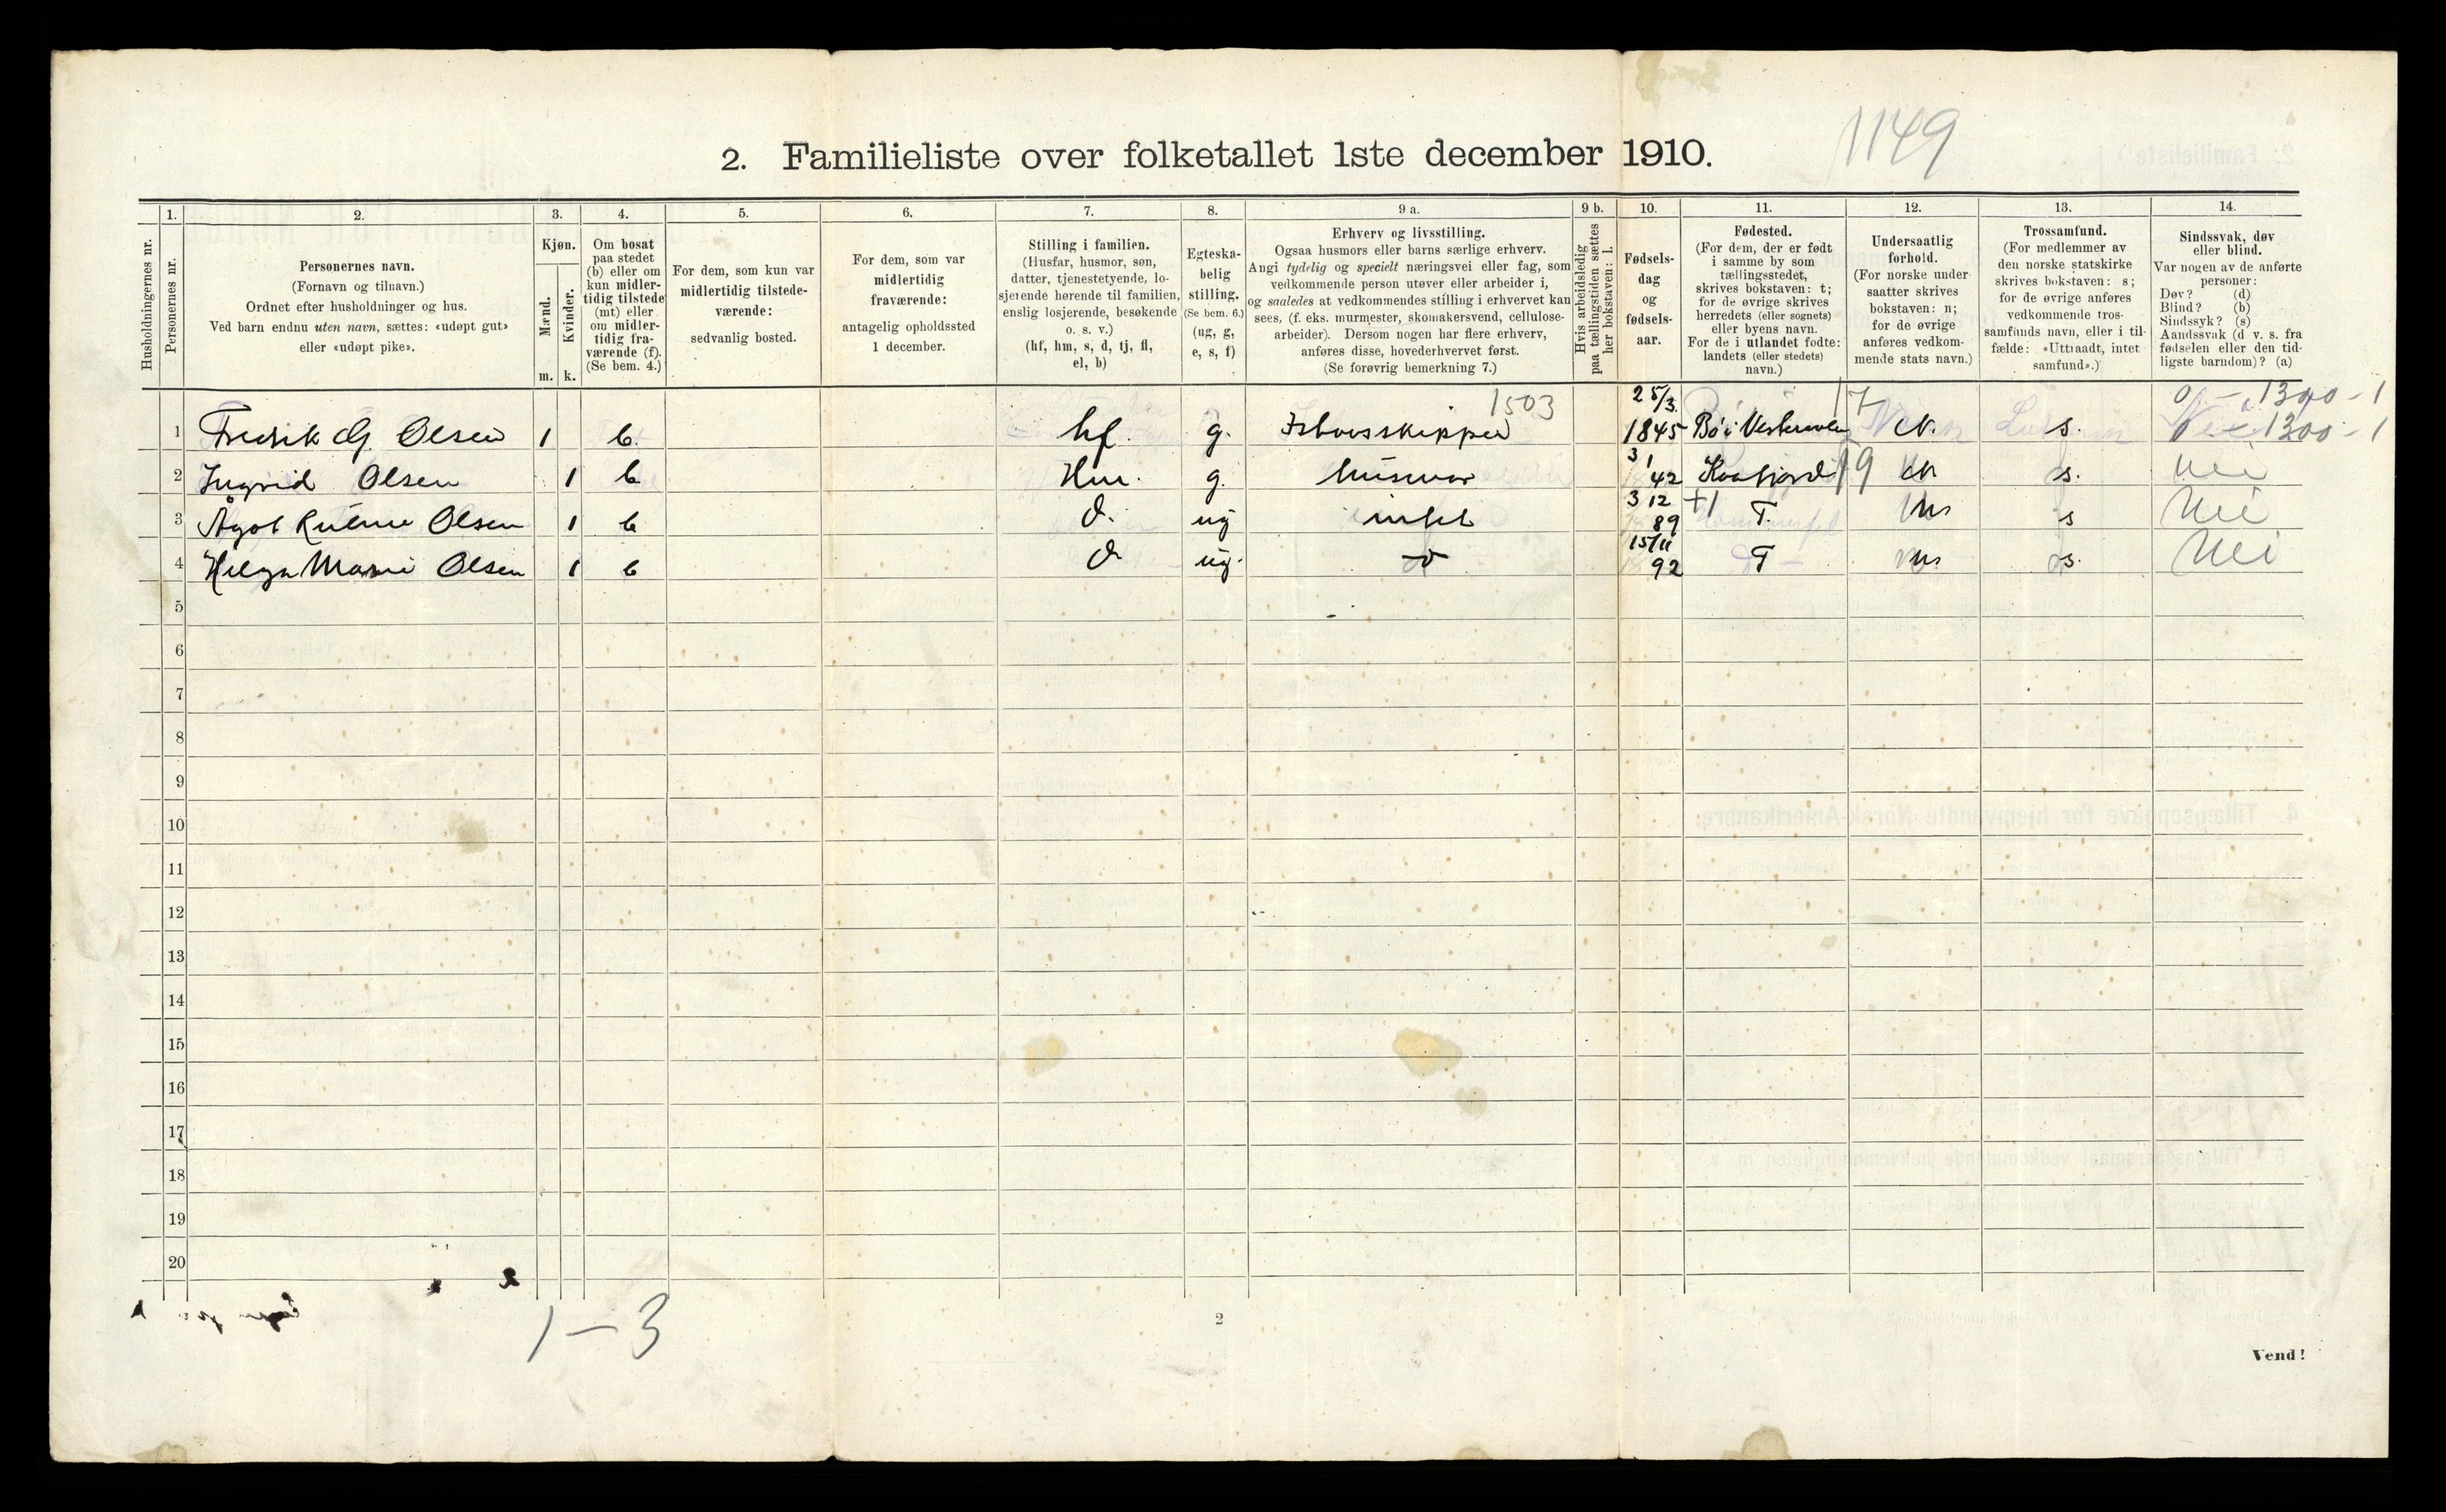 1149
2. Familieliste over folketallet 1ste december 1910.
Husholdningernes nr.
1.
Personernes nr.
2.
Personernes navn.
(Fornavn og tilnavn.)
Ordnet efter husholdninger og hus.
Ved barn endnu uten navn, sættes: «udøpt gut»
eller «udøpt pike».
3.
Kjøn.
Mænd.
Kvinder.
m. k.
4.
Om bosat
paa stedet
(b) eller om
kun midler-
tidig tilstede
(mt) eller
om midler-
tidig fra-
værende (f).
(Se bem. 4.)
5.
For dem, som kun var
midlertidig tilstede-
værende:
sedvanlig bosted.
6.
For dem, som var
midlertidig
fraværende:
antagelig opholdssted
1 december.
7.
Stilling i familien.
(Husfar, husmor, søn,
datter, tjenestetyende, lo-
sjerende hørende til familien,
enslig losjerende, besøkende
o. s. v.)
(hf, hm, s, d, tj, fl,
el, b)
8.
Egteska-
belig
stilling.
(Se bem. 6.)
(ug, g,
e, s, f)
9 a.
Erhverv og livsstilling.
Ogsaa husmors eller barns særlige erhverv.
Angi tydelig og specielt næringsvei eller fag, som
vedkommende person utøver eller arbeider i,
og saaledes at vedkommendes stilling i erhvervet kan
sees, (f. eks. murmester, skomakersvend, cellulose-
arbeider). Dersom nogen har flere erhverv,
anføres disse, hovederhvervet først.
(Se forøvrig bemerkning 7.)
9 b.
Hvis arbeidsledig
paa tællingstiden sættes
her bokstaven: l.
10.
Fødsels-
dag
og
fødsels-
aar.
11.
Fødested.
(For dem, der er født
i samme by som
tællingsstedet,
skrives bokstaven: t;
for de øvrige skrives
herredets (eller sognets)
eller byens navn.
For de i utlandet fødte:
landets (eller stedets)
navn.)
12.
Undersaatlig
forhold.
(For norske under-
saatter skrives
bokstaven: n;
for de øvrige
anføres vedkom-
mende stats navn.)
13.
Trossamfund.
(For medlemmer av
den norske statskirke
skrives bokstaven: s;
for de øvrige anføres
vedkommende tros-
samfunds navn, eller i til-
fælde: «Uttraadt, intet
samfund».)
14.
Sindssvak, døv
eller blind.
Var nogen av de anførte
personer:
Døv? (d)
Blind? (b)
Sindssyk? (s)
Aandssvak (d. v. s. fra
fødselen eller den tid-
ligste barndom)? (a)
1503 25/3 17 0 - 1300 - 1
1 Fredrik G. Olsen 1 b. hf. g. Ishavsskipper 1845 Bø i Vesteraalen N. s. 0 - 1300 - 1
2 Ingrid Olsen 1 b Hm. g. husmor 3/1 42 Kaafjord 19 N s. Nei
3 Ågot Rutine Olsen 1 b d. ug intet 3 12 89 +1 T. N s Nei
4 Helga Marie Olsen 1 b d ug. 15/11 92 T N. s. Nei
5
6
7
8
9
10
11
12
13
14
15
16
17
18
19
20
1 - 3
2
Vend!